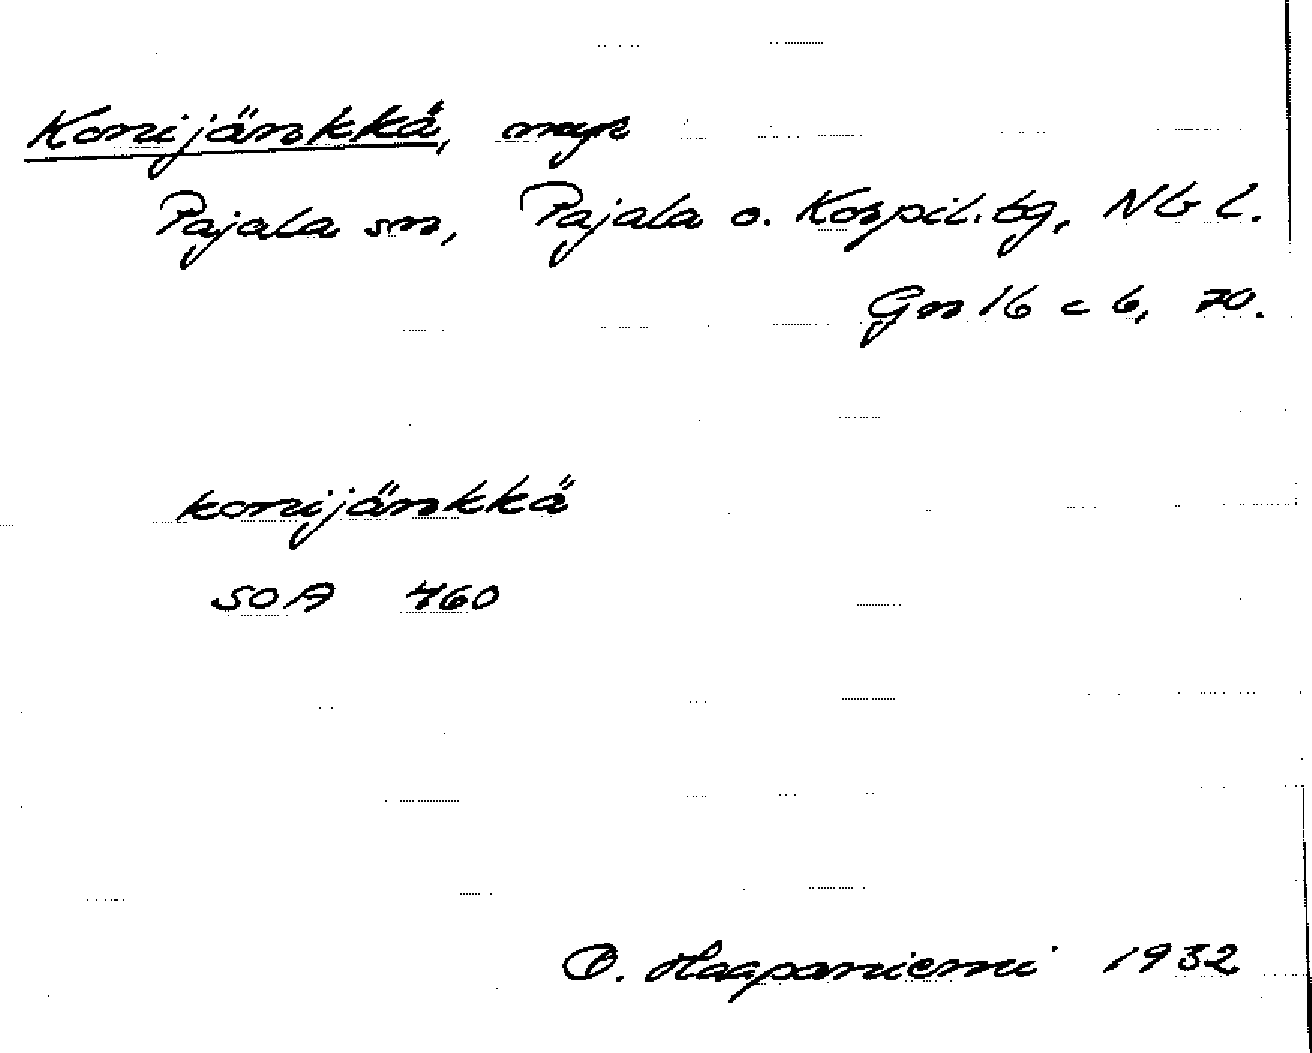 Konijänkkä, myr
Pajala sn, Pajala o. Korpil. tg, Nb l.
Gn 16 c 6, 70.
konijänkkä
SOA 460
O. Haapaniemi 1932